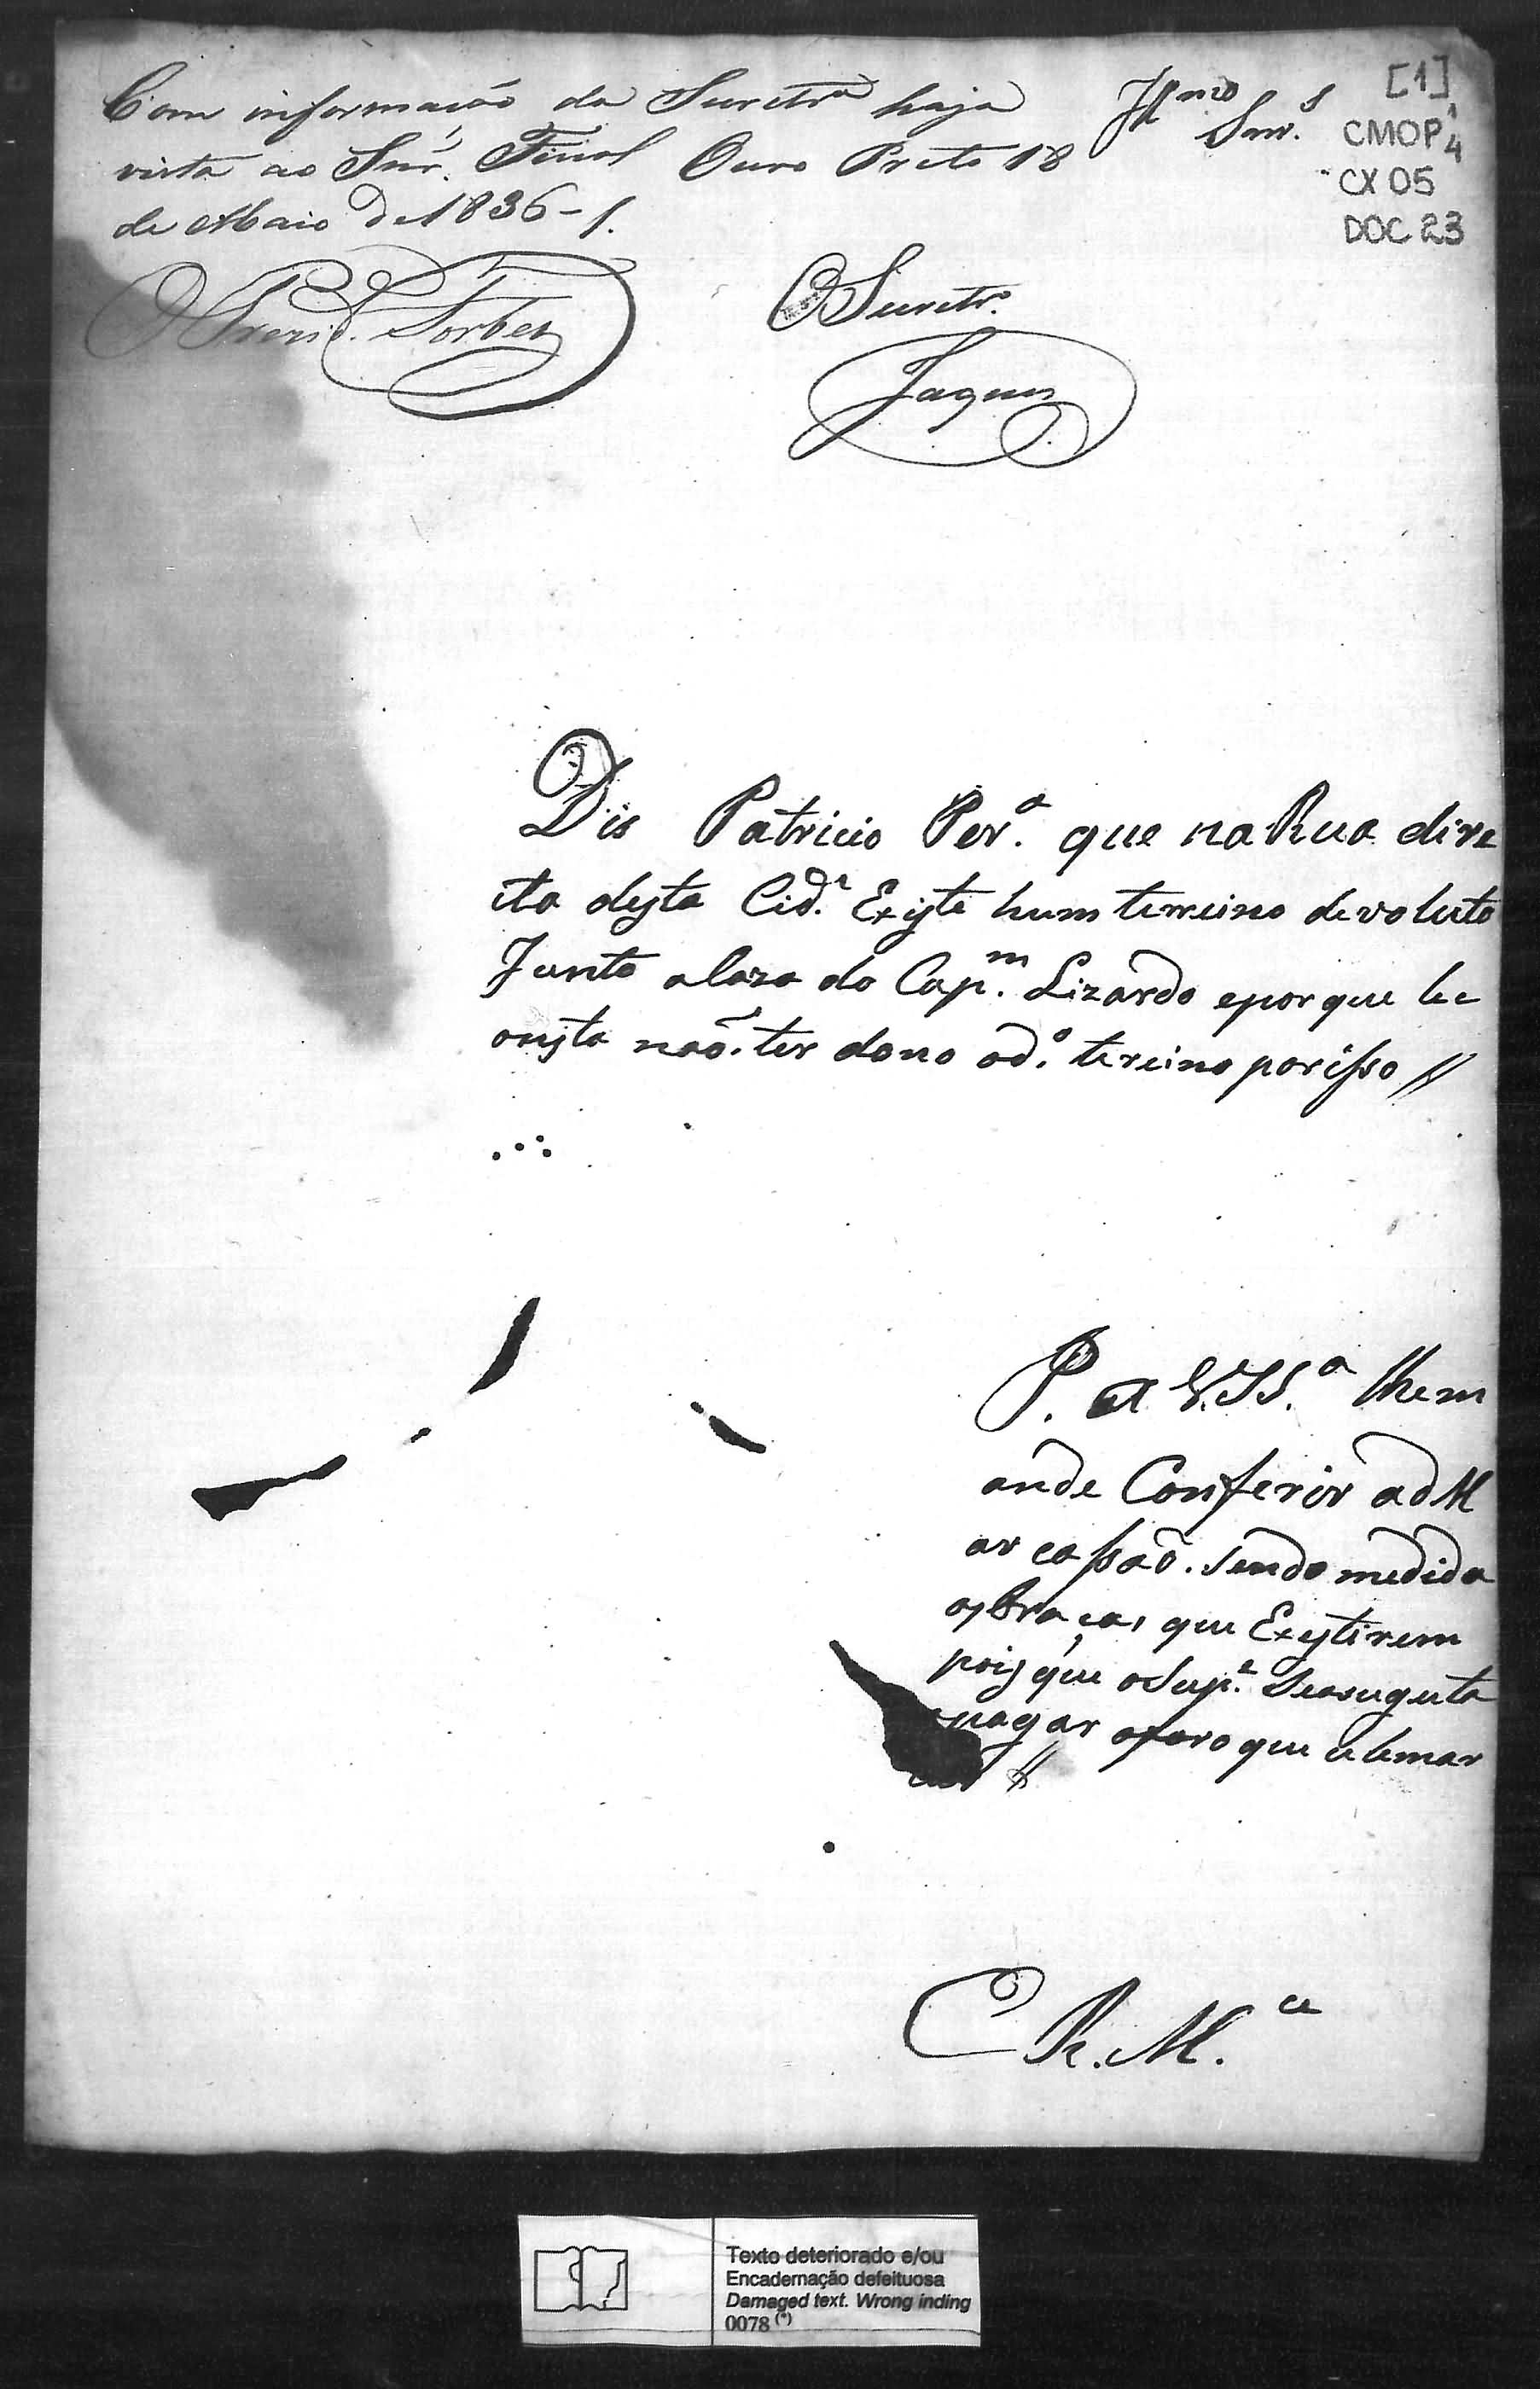 Com informação da Secretrª haja
vista ao Snr. Fiscal Ouro Preto 18
de Maio de 1836 -
Illmos Snrs
[1]
CMOP
CX 05
DOC 23
O Secretrº
Jaques
Dis Patricio Perª. que na Rua dire
ita desta Cidᵉ. Exyste hum terreino devoluto
Junto a Caza do Capᵐ. Lizardo e por que le
onsta naõ ter dono o dº. tereino por isso //
P. a V.SSª. lhem
ande Conferir a d M
arcassaõ. Sendo medida
as braças que Exystirem
pois que o Supᵉ. Seasugeita
apagar oforo que lemar
car //
E R. M.ce
Texto deteriorado e/ou
Encadernação defeituosa
Damaged text. Wrong inding
0078 (*)